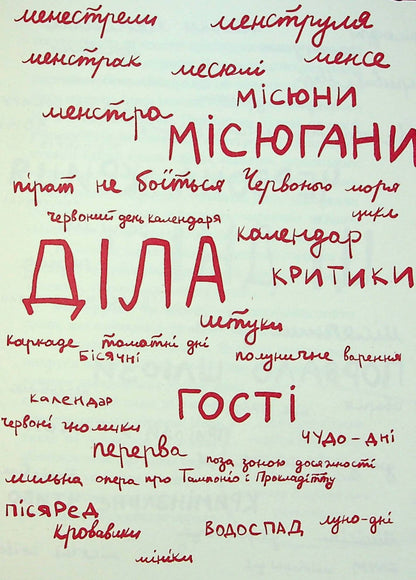 менестрели менструля
менстрак месюлі менсе
менстра місюни
місюгани
пірат не боїться Червоного моря
червоний день календаря цикл
календар
ДІЛА критики
штуки
каркаде томатні дні
бісячні полуничне варення
календар ГОСТІ
червоні гномики чудо-дні
перерва поза зоною досяжності
мильна опера про Тампоніо і Прокладітту
пісяРед
кровавики водоспад луно-дні
мініки